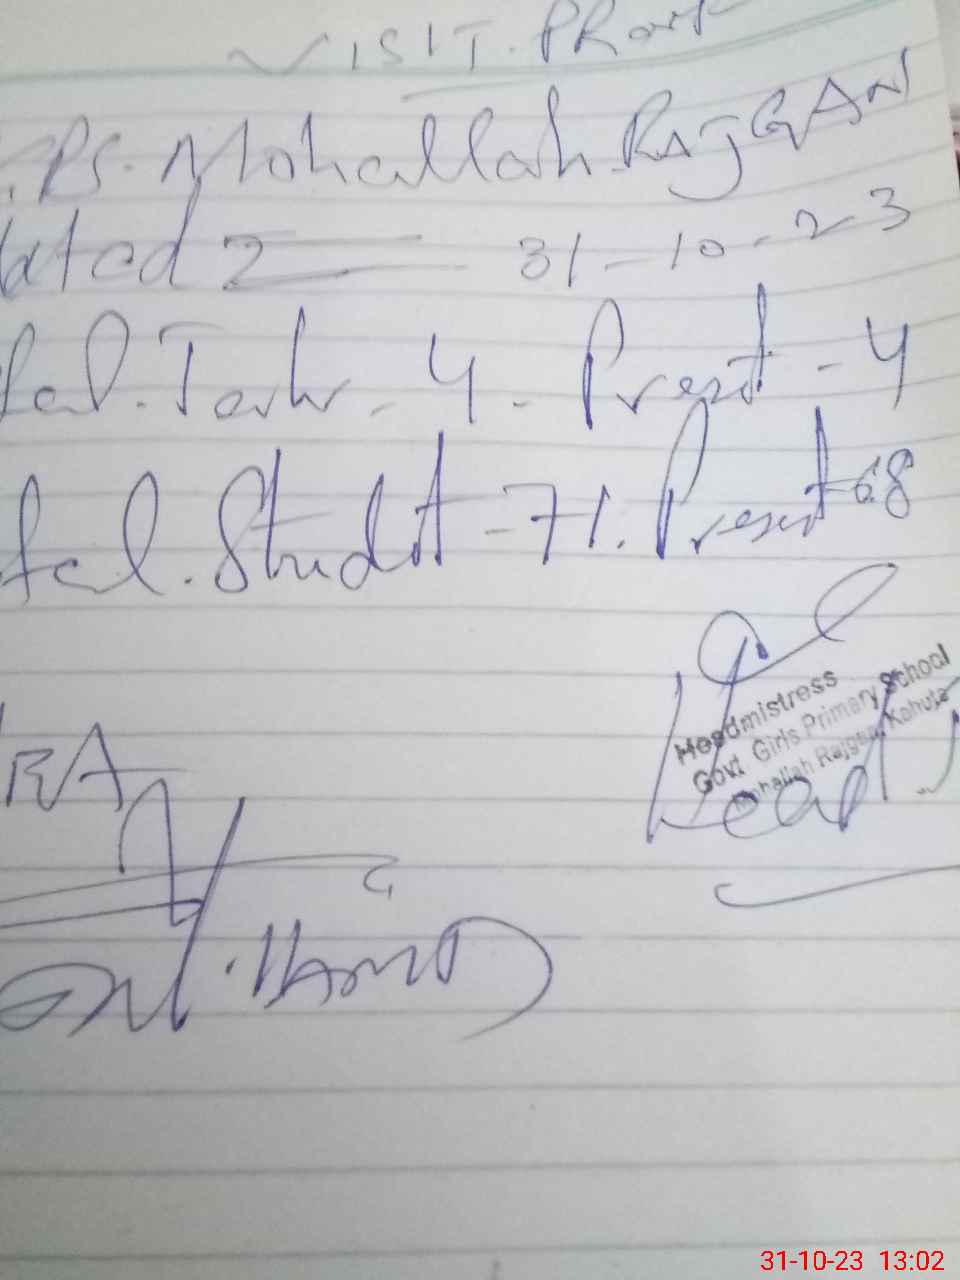 VISIT. PRoof
PS. Mohallah RAJGAN
ated 31-10-23
Techr - 4 - Present - 4
Studt - 71. Present 68
Headmistress
Govt Girls Primary School
Mohallah Rajgan Kahuta
Head
HAMID
31-10-23 13:02